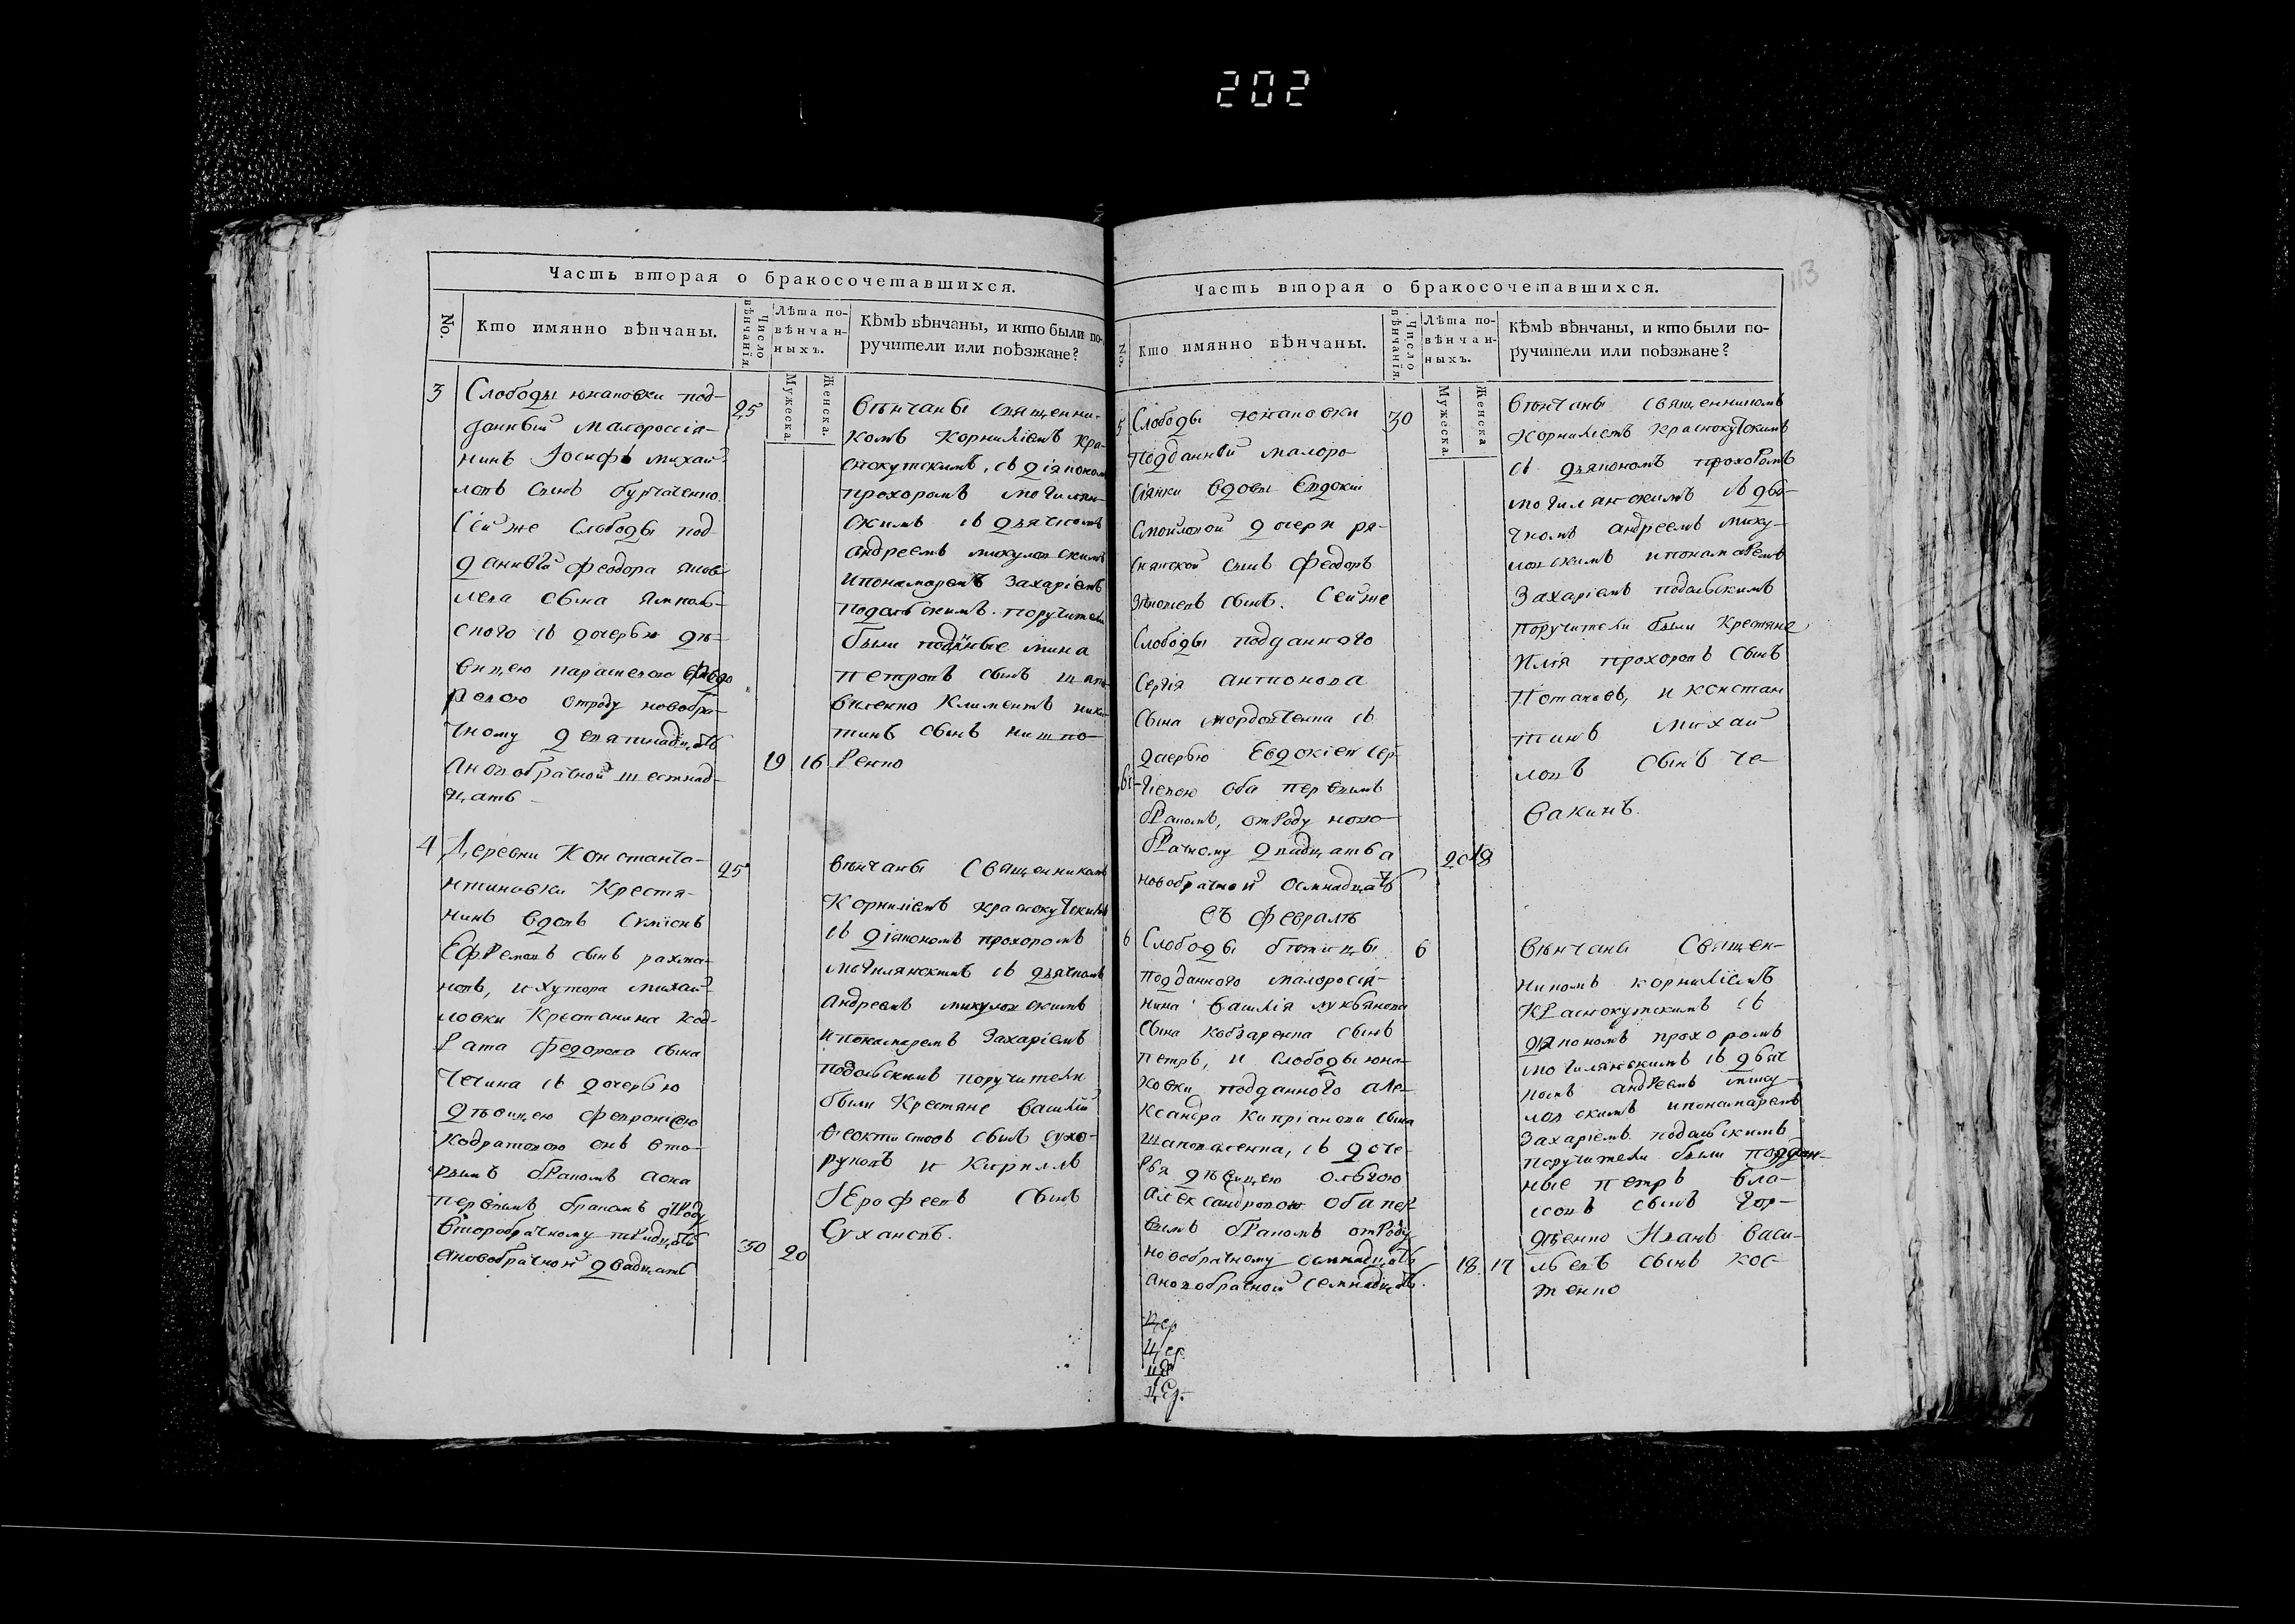 202
Часть вторая о бракосочетавшихся.
No.
Кто имянно вѣнчаны.
Число вѣнчанія
Лѣта по-
вѣнчан-
ныхъ.
Мужеска.
Женска.
Кѣмъ вѣнчаны, и кто были по-
ручители или поѣзжане?
3
Слободы юнаковки под-
данный малороссія-
нинъ Іосифъ михай-
ловъ сынъ бурчаченко.
Сей же Слободы под-
данного феодора яков-
лева сына ямполь-
ского съ дочерью дѣ-
вицею параскевою феодо
ровою отроду новобра-
чному девятнадцать
а новобрачной шестнад-
цать
25
19
16
вѣнчаны священни-
комъ Корниліемъ Кра-
снокутскимъ, съ діякономъ
прохоромъ могилян-
скимъ съ дьячкомъ
андреемъ микуловскимъ
и понамаремъ Захаріемъ
подольскимъ. поручители
были подданые мина
петровъ сынъ
Климентъ ники-
тинъ сынъ
ренко
4
Деревни Константа-
нтиновки Крестя-
нинъ вдовъ Симіонъ
Ефремовъ сынъ рахма-
новъ, и хутора михай-
ловки Крестянина Код-
рата Федорова сына
Чечина съ дочерью
дѣвицею феврониею
кодратовою онъ вто-
рымъ бракомъ а она
первымъ бракомъ отроду
второбрачному тридцать
а новобрачной двадцать
25
30
20
вѣнчаны Священникомъ
Корниліемъ краснокутскимъ
съ діякономъ прохоромъ
могилянскимъ съ дьячкомъ
андреемъ микуловскимъ
и понамаремъ Захаріемъ
подольскимъ поручители
были Крестяне василій
феоктистовъ сынъ сухо-
руковъ и Кириллъ
Ерофеевъ сынъ
Сухановъ.
Часть вторая о бракосочетавшихся.
113
No.
Кто имянно вѣнчаны.
Число вѣнчанія.
Лѣта по-
вѣнчан-
ныхъ.
Мужеска.
Женска
Кѣмъ вѣнчаны, и кто были по-
ручители или поѣзжане?
5
Слободы юнаковки
подданной малоро-
сіянки вдовы Евдокіи
Самойловой дочери ря-
снянской сынъ феодоръ
сынъ. Сей же
слободы подданного
Сергія антонова
сына мордовченка съ
дочерью Евдокіею сер-
гіевою оба первымъ
бракомъ, отроду ново-
брачному двадцать а
новобрачной осмнадцать
30
20
18
вѣнчаны священникомъ
Корниліемъ Краснокутскимъ
съ дьякономъ прохоромъ
могилянскимъ съ дья-
чкомъ андреемъ мику-
ловскимъ и понамаремъ
Захаріемъ подольскимъ
поручители были Крестяне
Илія прохоровъ сынъ
Потаповъ, и констан
тинъ михай
ловъ сынъ че-
вакинъ.
въ февралѣ
6
Слободы битицы
подданного малоросія-
нина василія лукьянова
сына кобзаренка сынъ
петръ, и слободы юна-
ковки подданного але-
ксандра Кипріанова сына
Шаповаленка, съ доче-
рью дѣвицею ольгою
Александровою оба пер-
вымъ бракомъ отроду
новобрачному осмнадцать
а новобрачной семнадцать.
6
18
17
вѣнчаны Священ-
никомъ корниліемъ
Краснокутскимъ съ
дьякономъ прохоромъ
могилянскимъ съ дьяч
комъ андреемъ мику-
ловскимъ и понамаремъ
Захаріемъ подольскимъ
поручители были поддан-
ные петръ вла-
совъ сынъ гор-
дѣенко Иванъ васи-
льевъ сынъ кос-
тенко
Цер
Цер.
Цер.